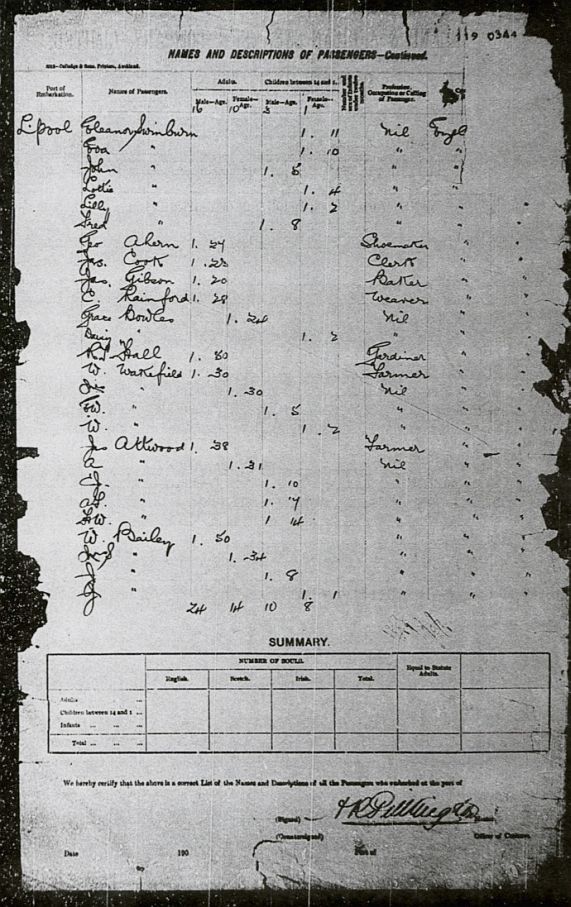 119 0344
NAMES AND DESCRIPTIONS OF PASSENGERS—Continued.
Port of Embarkation. Names of Passengers. Adults. Children between 14 and 1. Profession, Occupation or Calling of Passenger.
Male—Age. Female—Age. Male—Age. Female—Age.
16 10 3 1
L'pool Eleanor Swinburn 1. 11 Nil Engl
Eva " 1. 10 "
John " 1. 6 "
Lottie " 1. 4 "
Lilly " 1. 2 "
Fred " 1. 8 "
Geo Ahern 1. 27 Shoemaker "
Jas. Cook 1. 23 Clerk "
Jas. Gibson 1. 20 Baker "
C. Rainford 1. 28 Weaver "
Grace Bowles 1. 24 Nil "
Daisy " 1. 2 " "
Rd Hall 1. 50 Gardiner "
W. Wakefield 1. 30 Farmer "
" 1. 30 Nil "
W. " 1. 5 " "
W. " 1. 2 " "
Jas Attwood 1. 38 Farmer "
A " 1. 31 Nil "
" 1. 10 " "
" 1. 7 " "
W. " 1 14 " "
W. Bailey 1. 50 "
" 1. 34 " "
" 1. 8 " "
" 1. 1 " "
24 14 10 8
SUMMARY.
NUMBER OF SOULS. Equal to Statute Adults.
English. Scotch. Irish. Total.
Adults ...
Children between 14 and 1 ...
Infants ... ... ...
Total ... ... ...
We hereby certify that the above is a correct List of the Names and Descriptions of all the Passengers who embarked at the port of
(Signed) Master.
(Countersigned) Officer of Customs.
Date 190 Port of